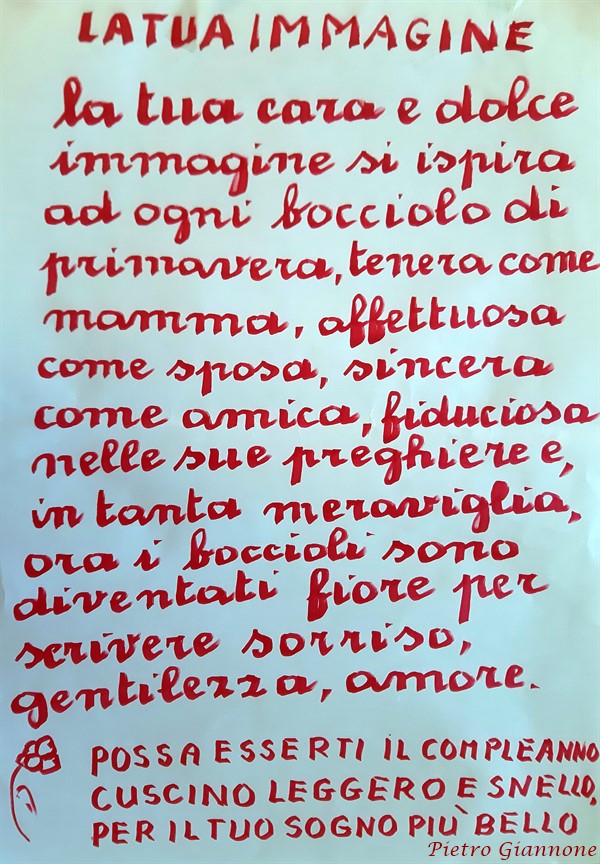 LA TUA IMMAGINE
la tua cara e dolce
immagine si ispira
ad ogni bocciolo di
primavera, tenera come
mamma, affettuosa
come sposa, sincera
come amica, fiduciosa
nelle sue preghiere e,
in tanta meraviglia,
ora i boccioli sono
diventati fiore per
scrivere sorriso,
gentilezza, amore.
POSSA ESSERTI IL COMPLEANNO
CUSCINO LEGGERO E SNELLO,
PER IL TUO SOGNO PIÙ BELLO
Pietro Giannone